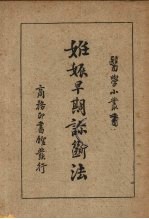 醫學小叢書
妊娠早期診斷法
商務印書館發行